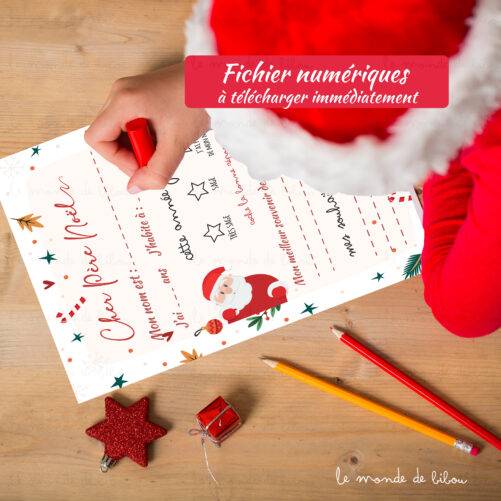 Fichier numériques
à télécharger immédiatement
Cher Père Noël
Mon nom est :
J'ai ans J'habite à :
cette année j
SAGE
TRÈS SAGE
Mon meilleur souvenir de
mes souha
le monde de bibou